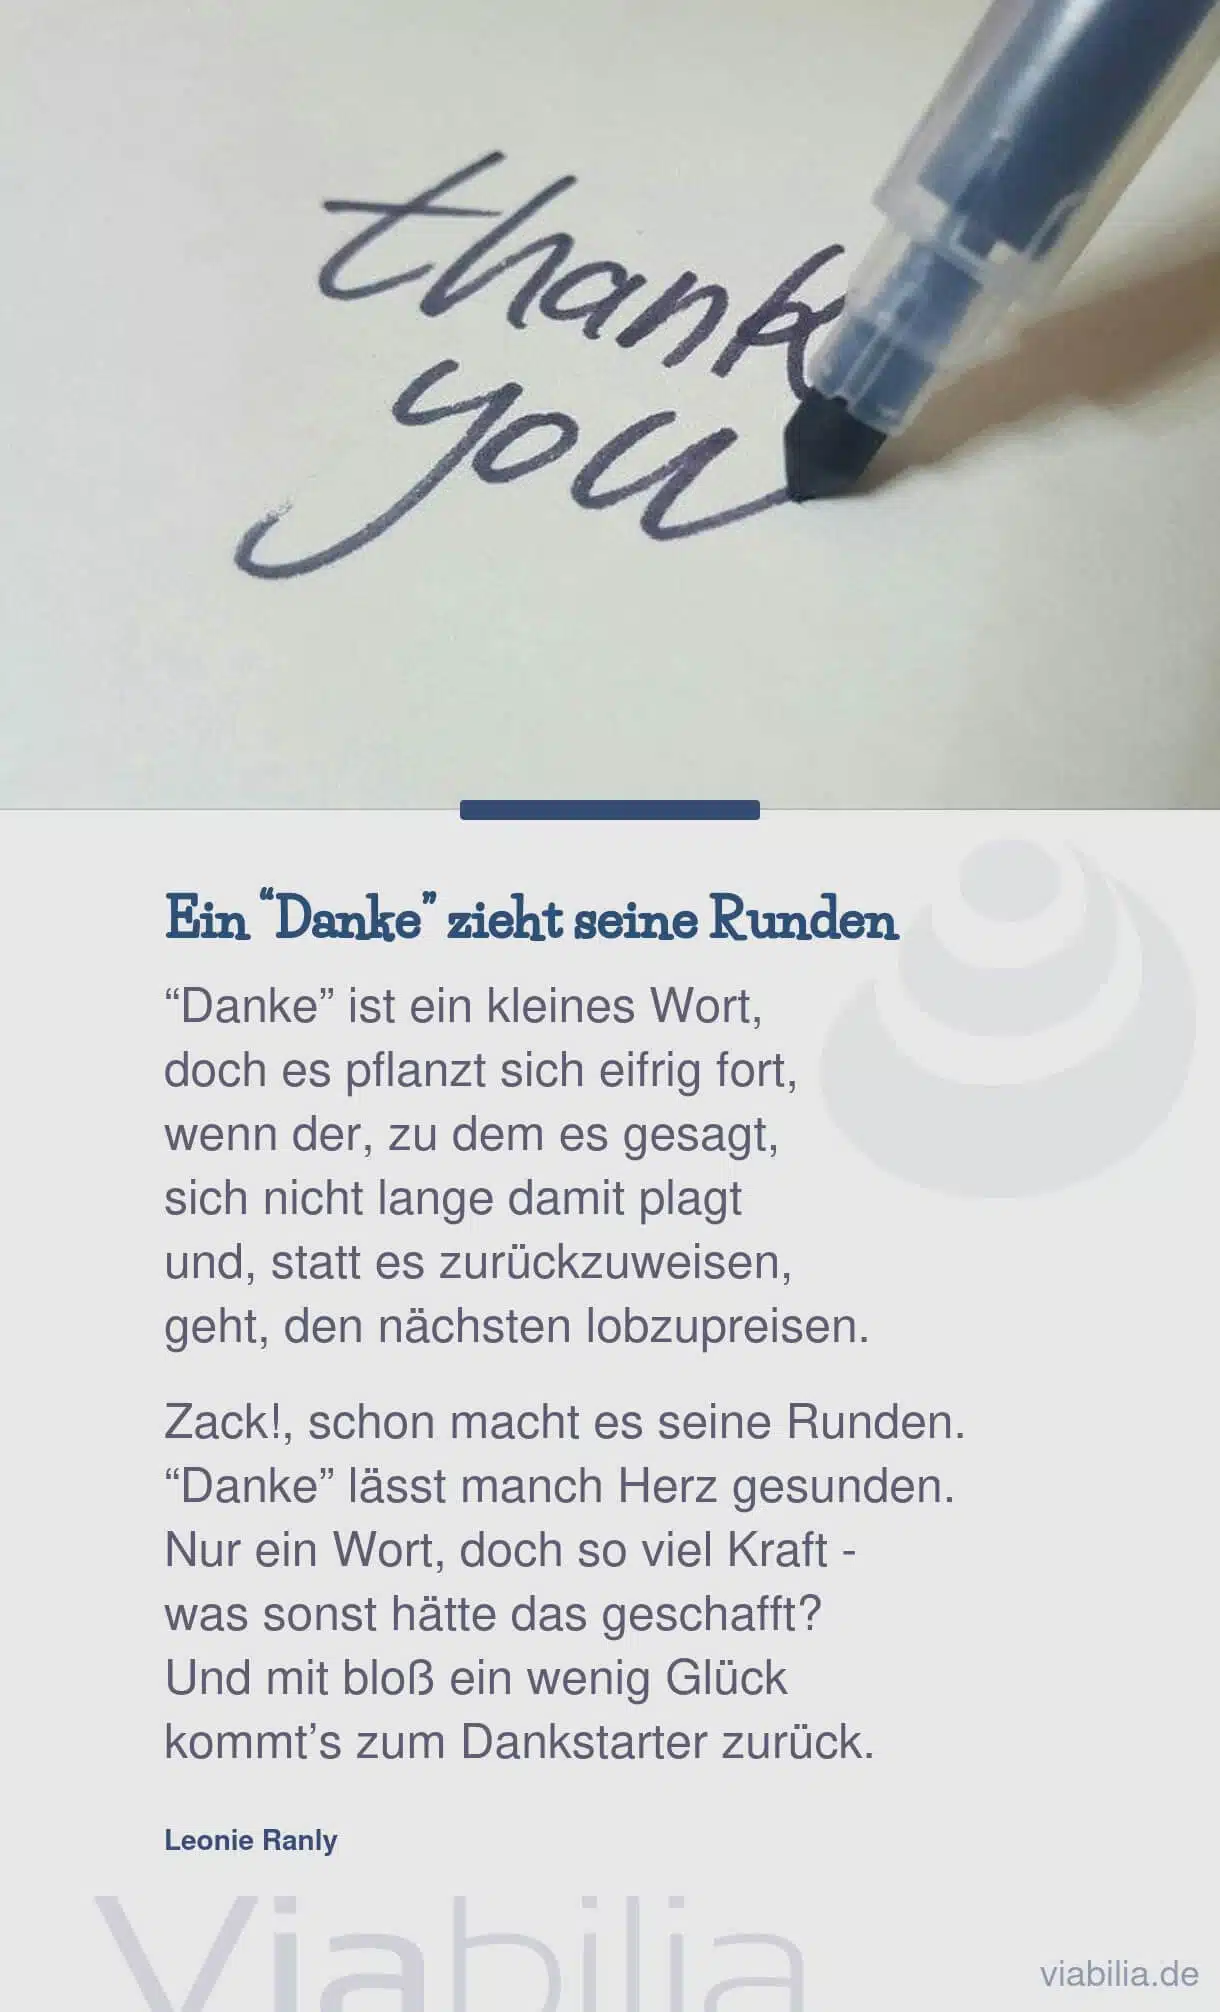 thank
you
Ein “Danke” zieht seine Runden
“Danke” ist ein kleines Wort,
doch es pflanzt sich eifrig fort,
wenn der, zu dem es gesagt,
sich nicht lange damit plagt
und, statt es zurückzuweisen,
geht, den nächsten lobzupreisen.
Zack!, schon macht es seine Runden.
“Danke” lässt manch Herz gesunden.
Nur ein Wort, doch so viel Kraft -
was sonst hätte das geschafft?
Und mit bloß ein wenig Glück
kommt’s zum Dankstarter zurück.
Leonie Ranly
Viabilia
viabilia.de